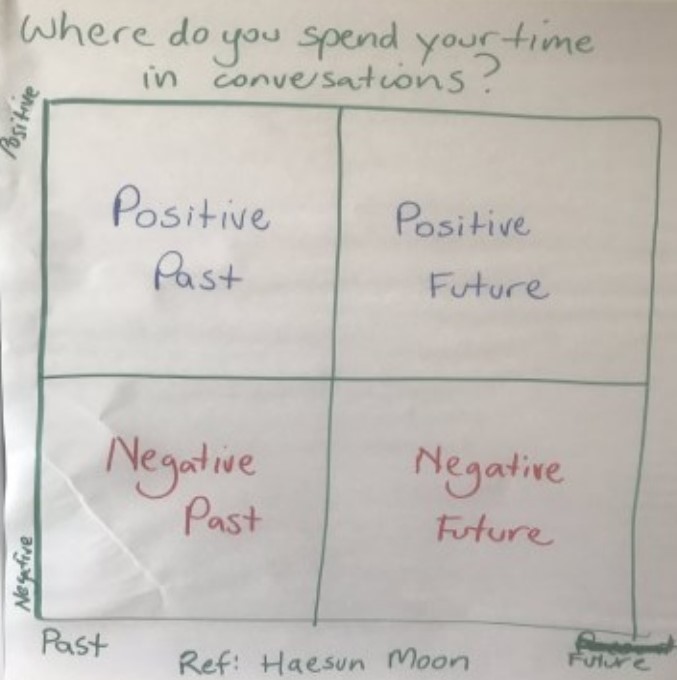 Where do you spend your time
in conversations?
Positive
Positive
Past
Positive
Future
Negative
Past
Negative
Future
Negative
Past
Future
Ref: Haesun Moon